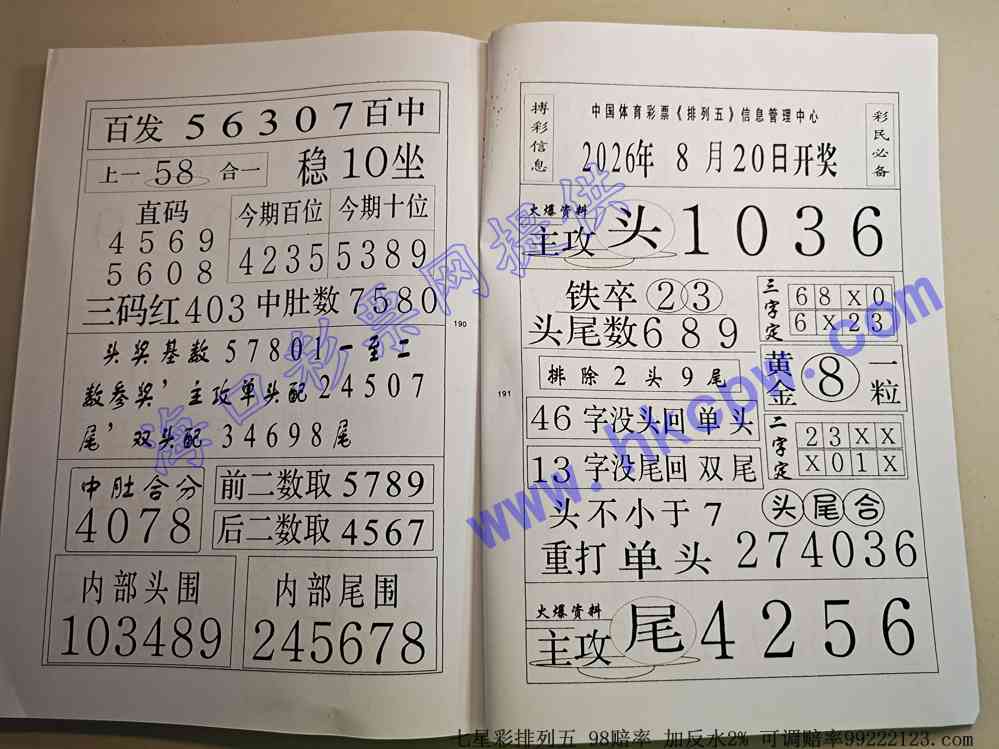 百发 56307 百中
上一 58 合一
稳 10 坐
直码
4569
5608
今期百位
4235
今期十位
5389
三码红 403 中肚数 7580
头奖基数 57801 一至二
数参奖，主攻单头配 24507
尾，双头配 34698 尾
中肚合分
4078
前二数取 5789
后二数取 4567
内部头围
103489
内部尾围
245678
190
搏彩信息
中国体育彩票《排列五》信息管理中心
2026年 8 月 20日开奖
彩民必备
火爆资料
主攻 头 1036
铁卒 23
头尾数 689
三字定
68X0
6X23
排除 2 头 9 尾
黄金 8 一粒
46 字没头回 单 头
13 字没尾回 双 尾
二字定
23XX
X01X
头 不 小 于 7
头尾合
重打 单 头 274036
火爆资料
主攻 尾 4256
191
海口彩票网提供
www.hkcpw.com
七星彩排列五 98赔率 加反水2% 可调赔率99222123.com